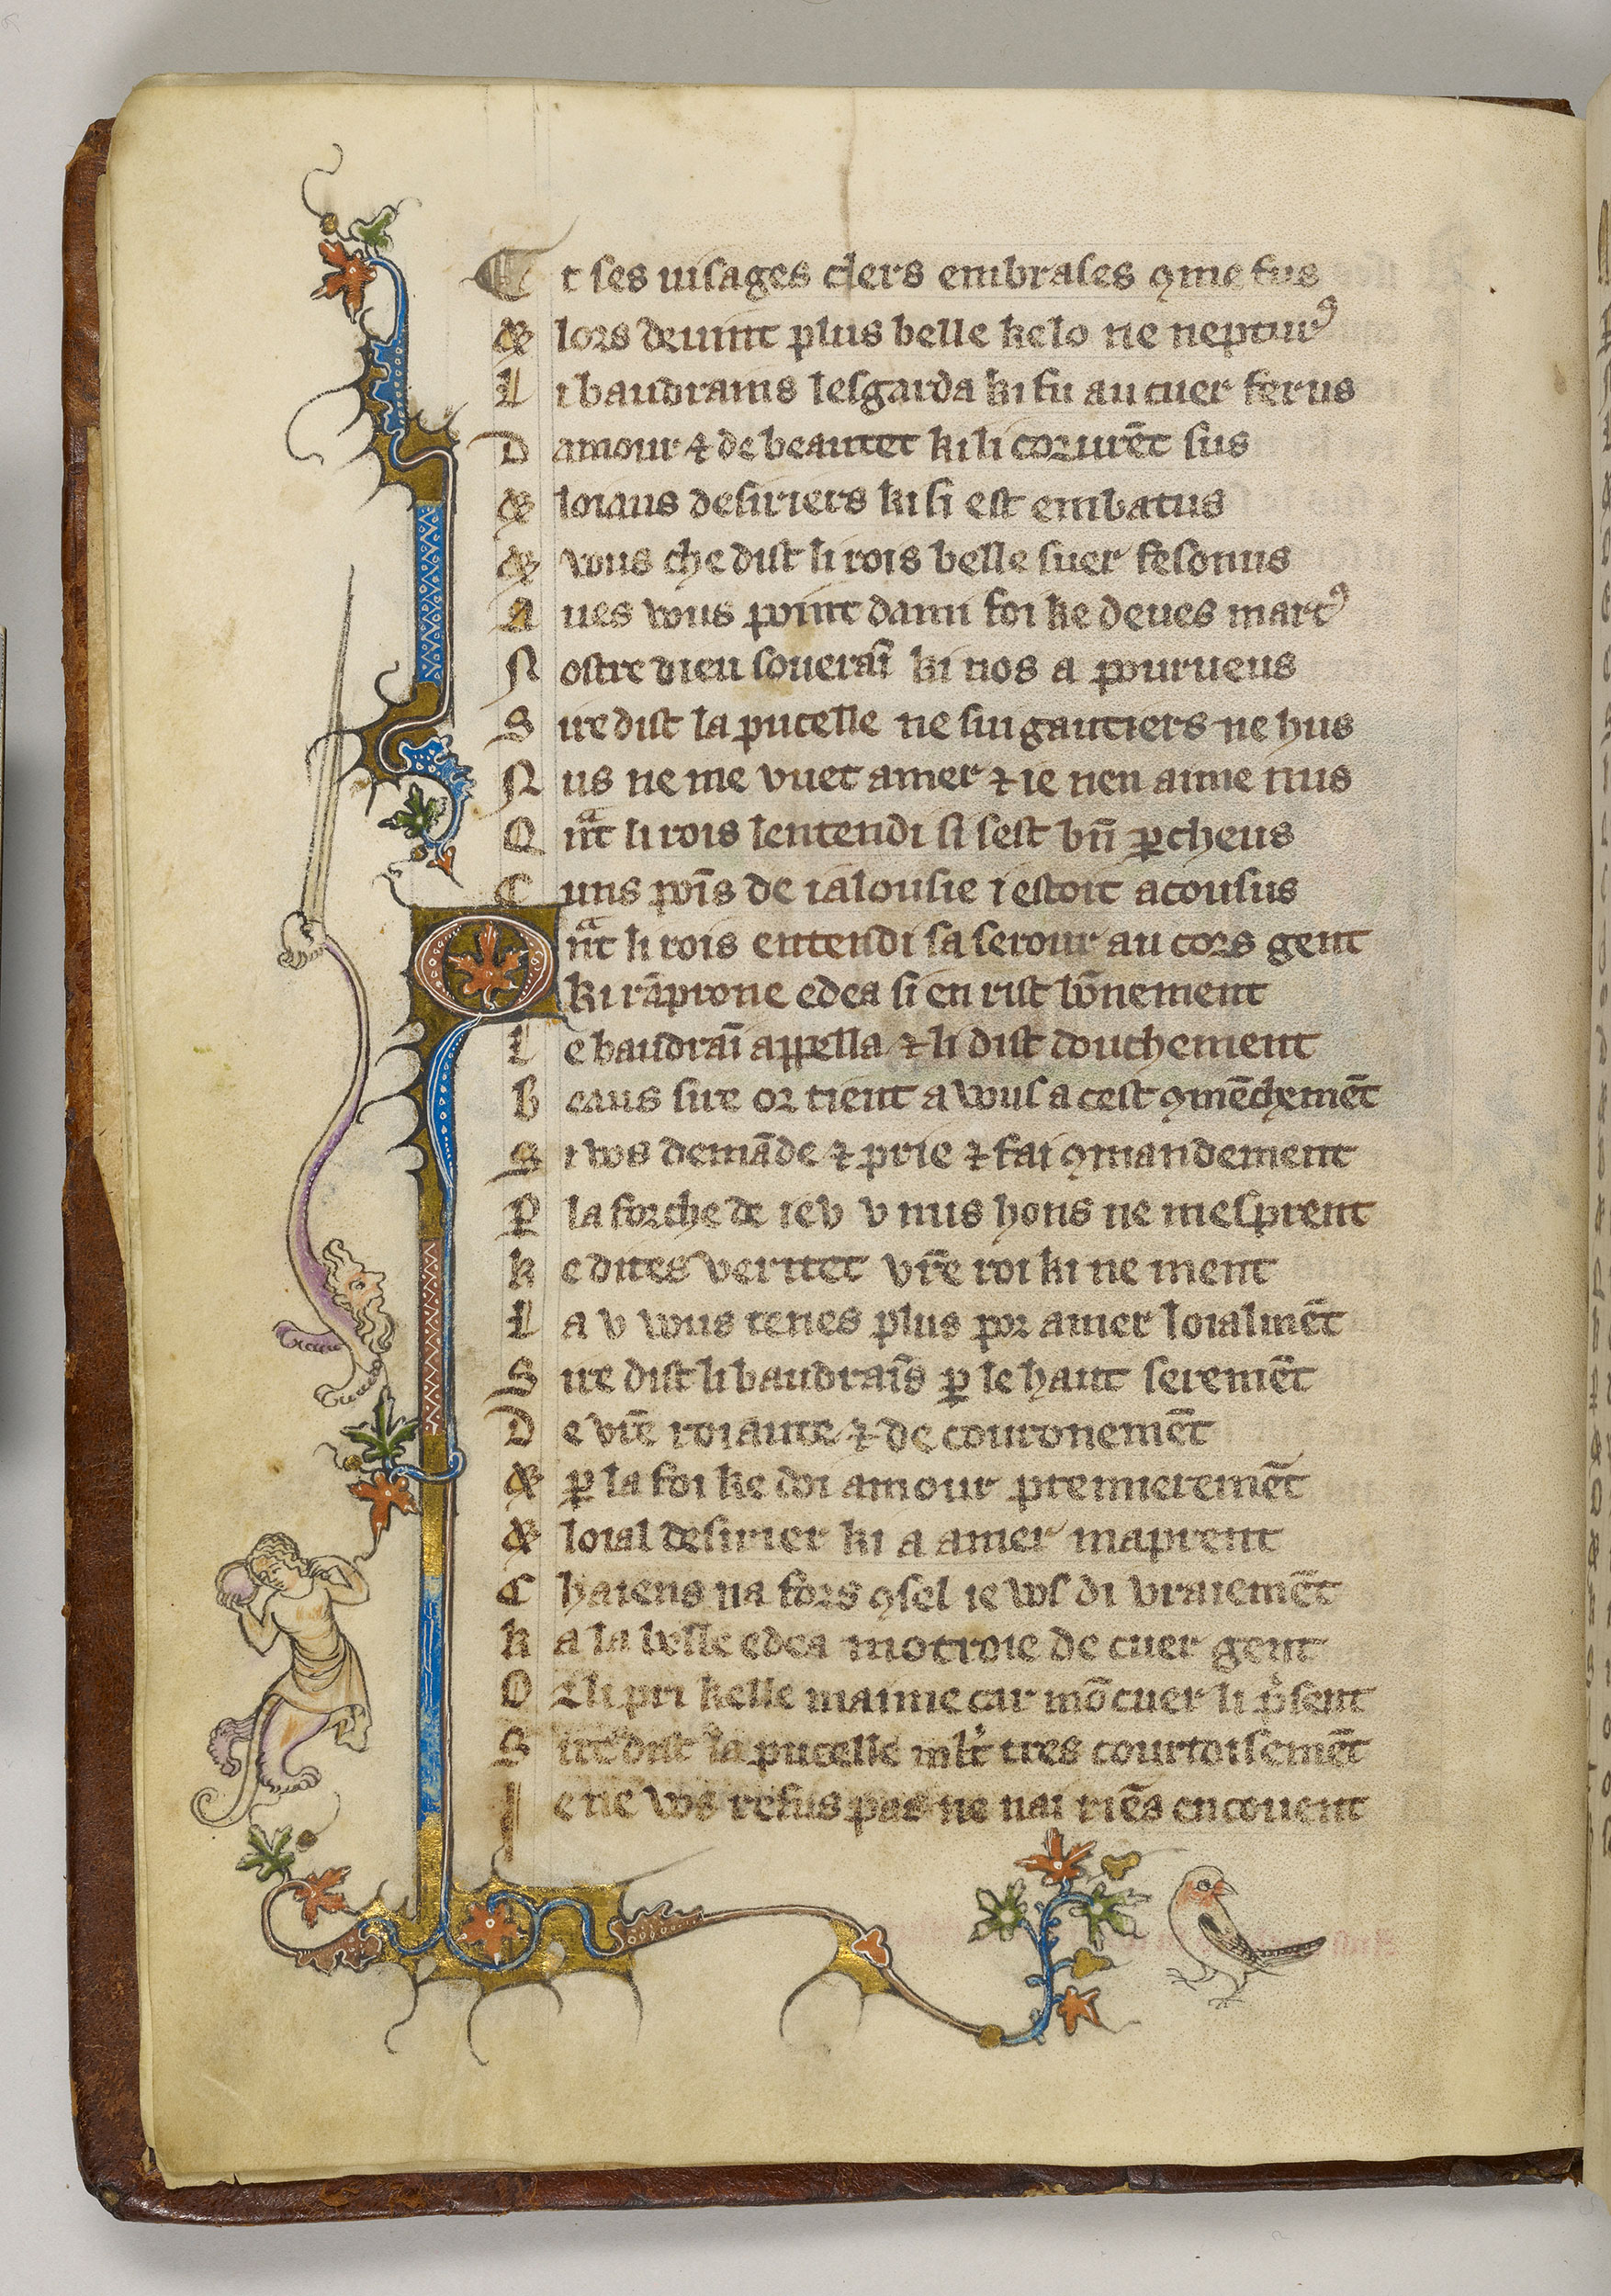 Et ses uisages clers embrases ꝯme fus
& lors deuint plus belle kelo ne neptunꝰ
Li baudrains lesgarda ki fu au cuer ferus
Damour ⁊ de beautet ki li corurēt sus
& loiaus desiriers ki si est embatus
& vous che dist li rois belle suer fesonus
Aues vous point dami foi ke deues martꝰ
Nostre dieu soueraī ki nos a pourueus
Sire dist la pucelle ne sui gautiers ne hus
Nus ne me vuet amer ⁊ ie nen aime nus
Qᵃnt li rois lentendi si sest bn̄ ꝑcheus
Cuns poīs de ialousie i estoit acousus
Qᵃnt li rois entendi sa serour au cors gent
ki rāprone edea si en rist bōnement
Le baudraī appella ⁊ li dist douchement
Beaus sire or tient a vous a cest ꝯmēchemēt
Si vos demāde ⁊ prie ⁊ fai ꝯmandement
Ꝑ la forche de ieu v nus hons ne mesprent
ke dites veritet vr̄e roi ki ne ment
La v vous tenes plus por amer loialmēt
Sire dist li baudraīs ꝑ le haut seremēt
De vr̄e roiaute ⁊ de couronemēt
& ꝑ la foi ke doi amour premieremēt
& loial desirier ki a amer maprent
Chaiens na fors ꝯsel ie vos di vraiemēt
ka la belle edea motroie de cuer gent
O ⁊ li pri kelle maime car mō cuer li p̓sent
Sire dist la pucelle ml̓t tres courtoisemēt
Ie ne vos refus pas ne nai riēs encouent